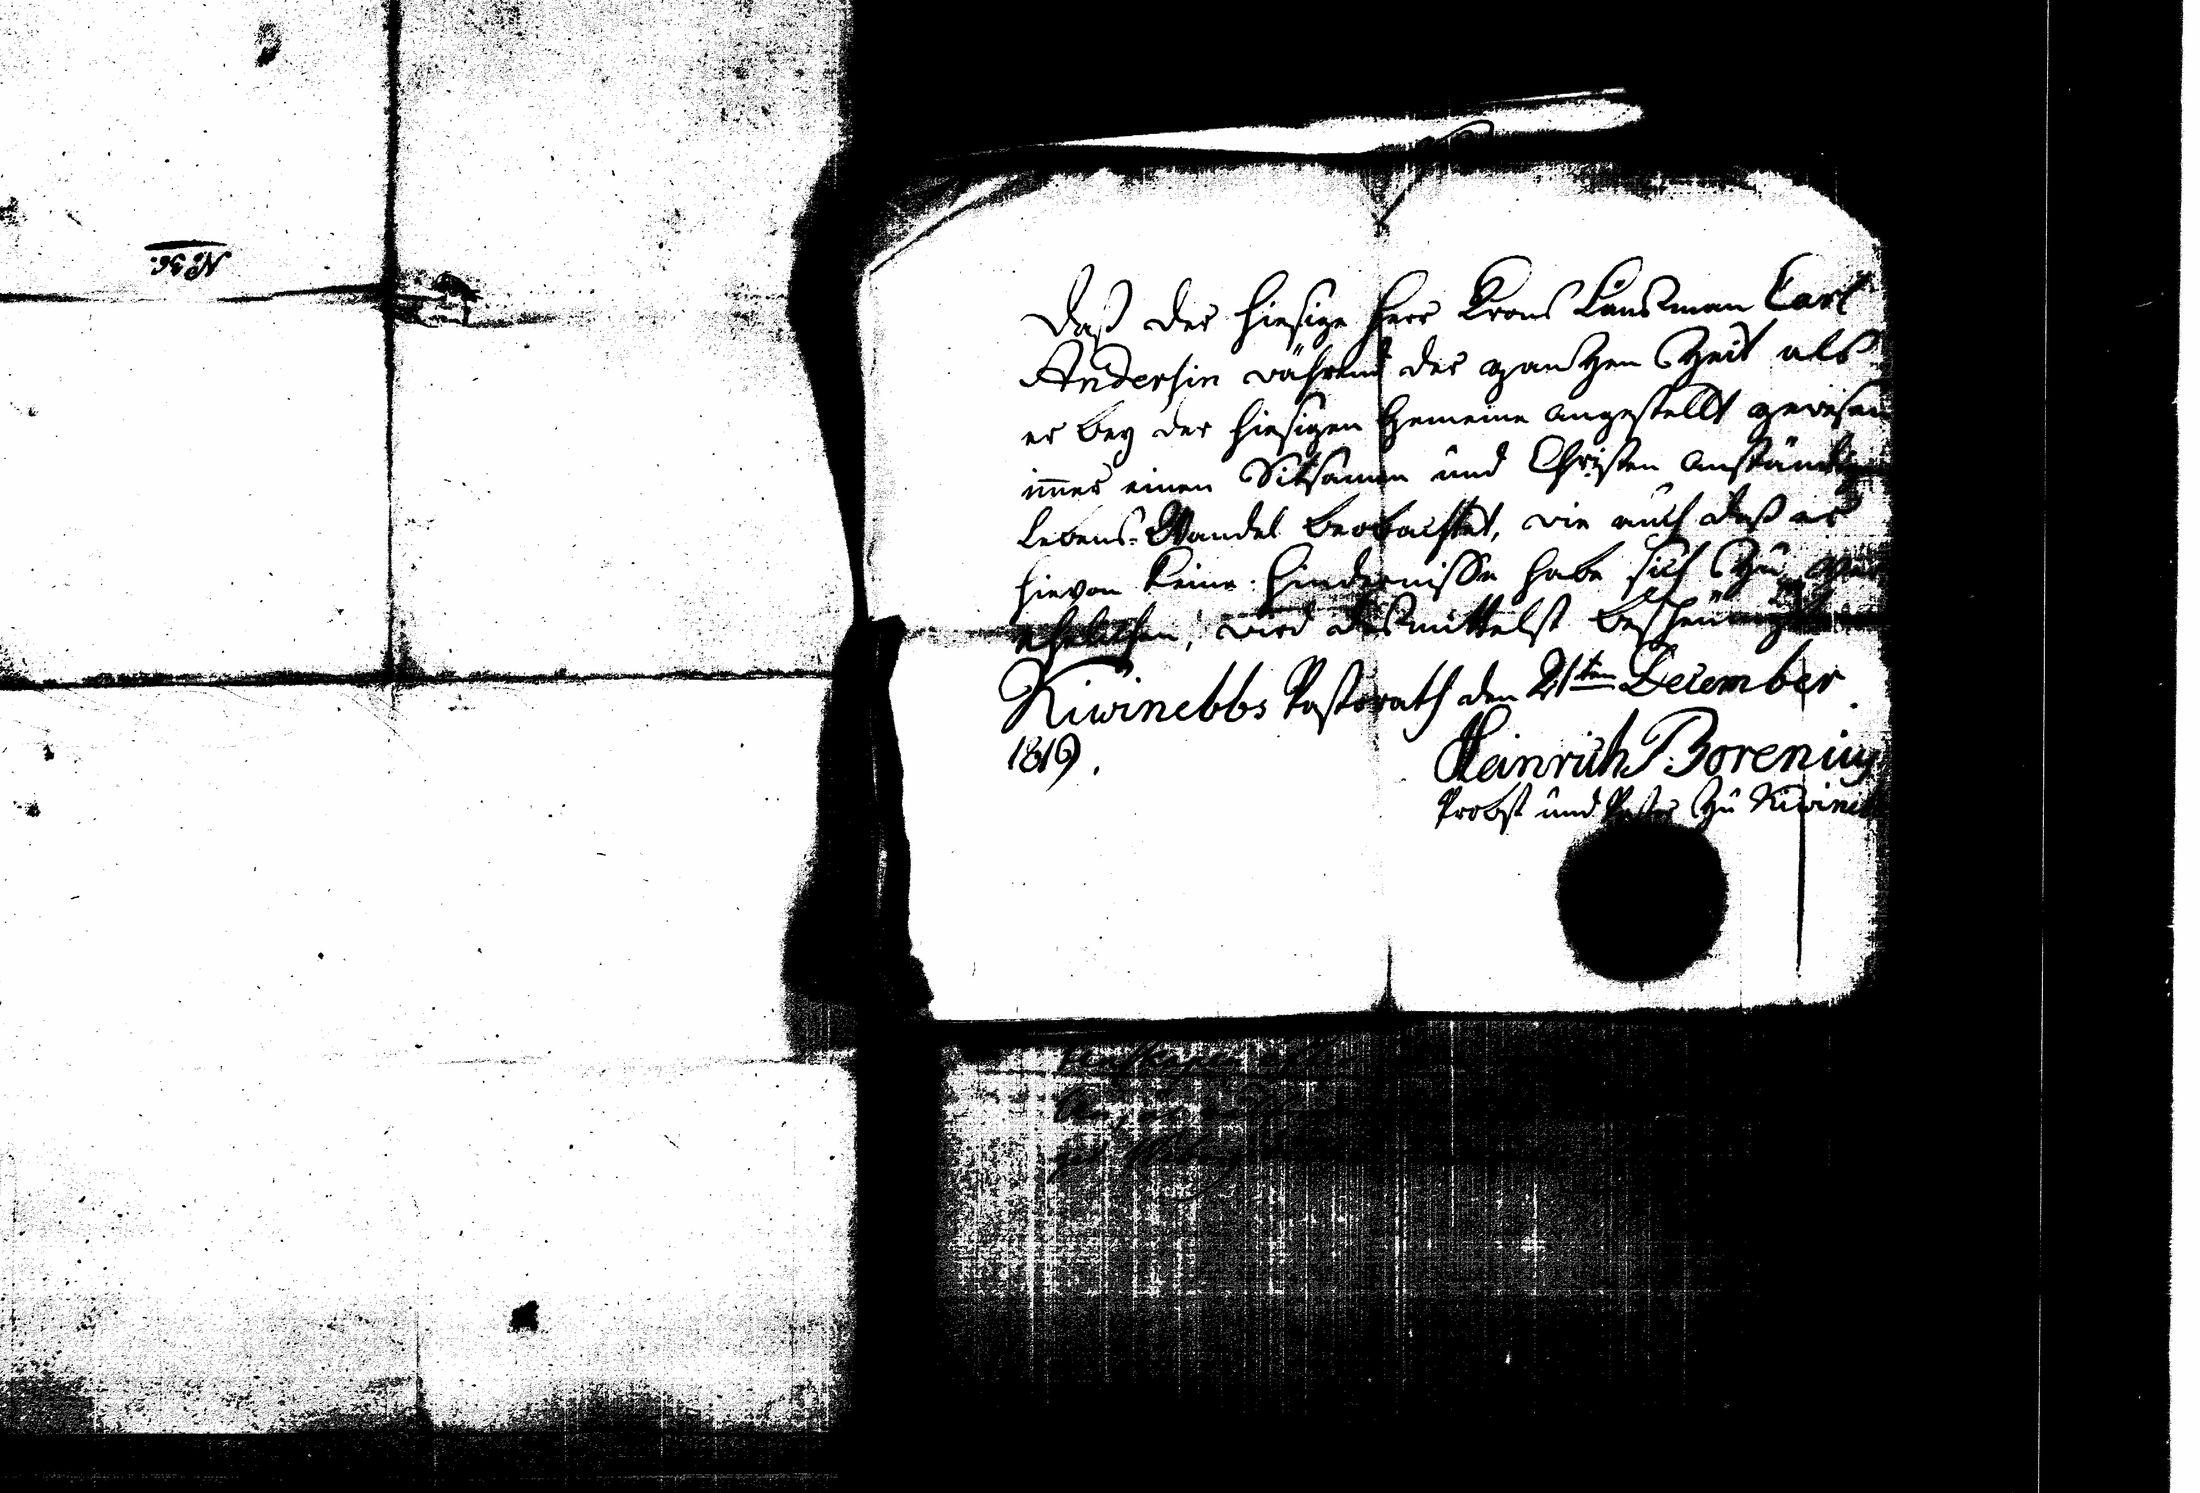 No 36.
Daß der hiesige Herr Krons Länsman Carl
Andersin während der gantzen Zeit als
er bey der hiesigen Gemeine angestellt gewesen
im̅er einen Sitsamen und Christen anständigen
Lebens-Wandel beobachtet, wie auch daß er
hievon keine Hindernisse habe sich zu ver
ehelichen, wird desmittelst bescheiniget
Kiwinebbs Pastorath den 21ten December
1819.
Heinrich Borenius
Probst und Pastor zu Kiwineb